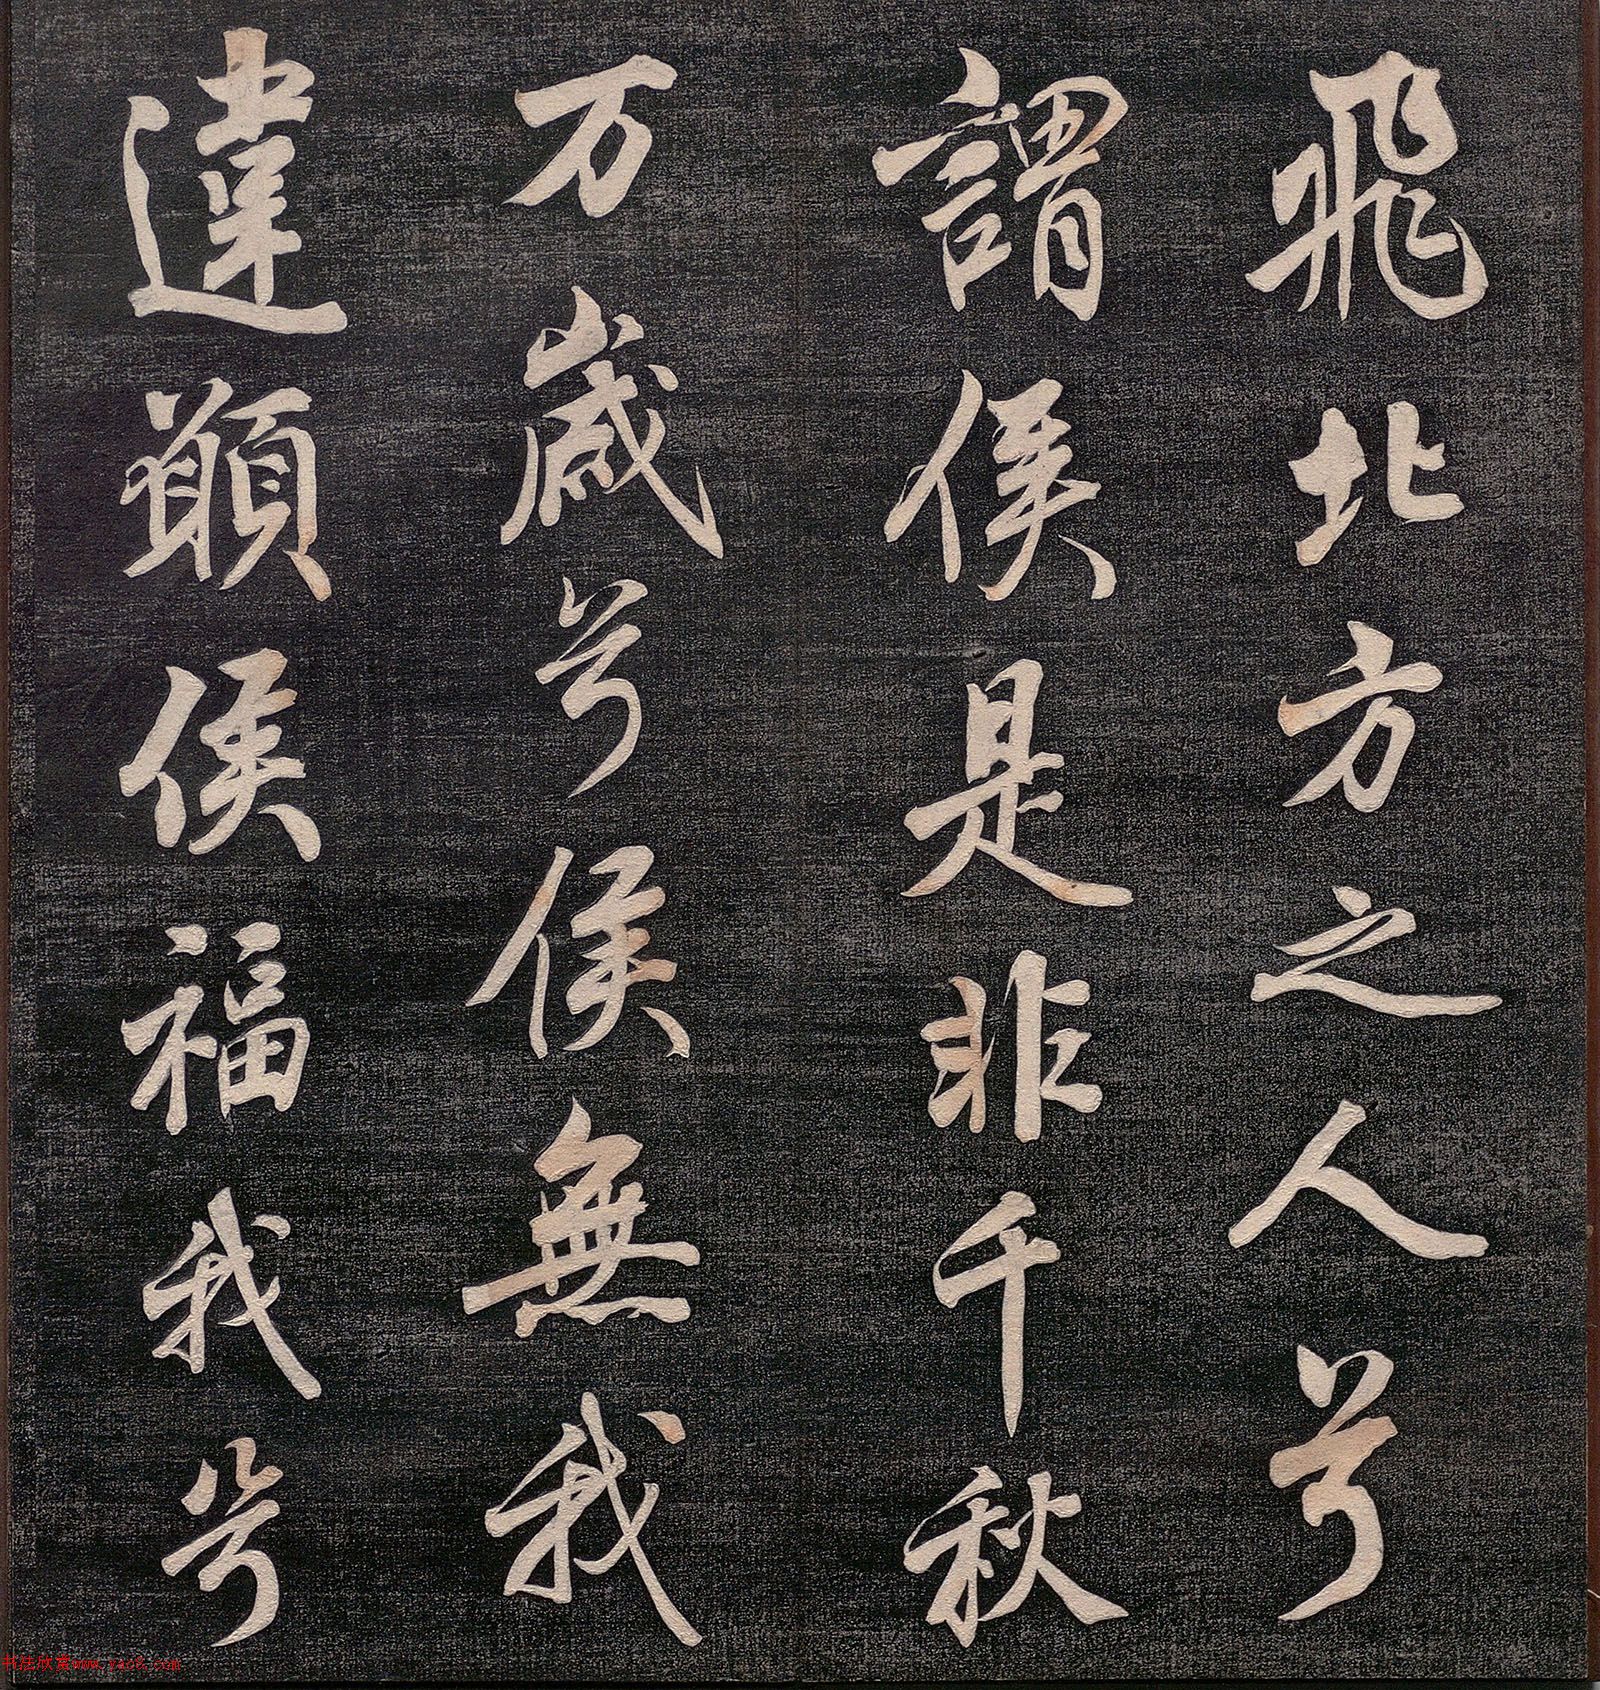 飛北方之人兮
謂侯是非千秋
万歲兮侯無我
違願侯福我兮
书法欣赏www.yac8.com